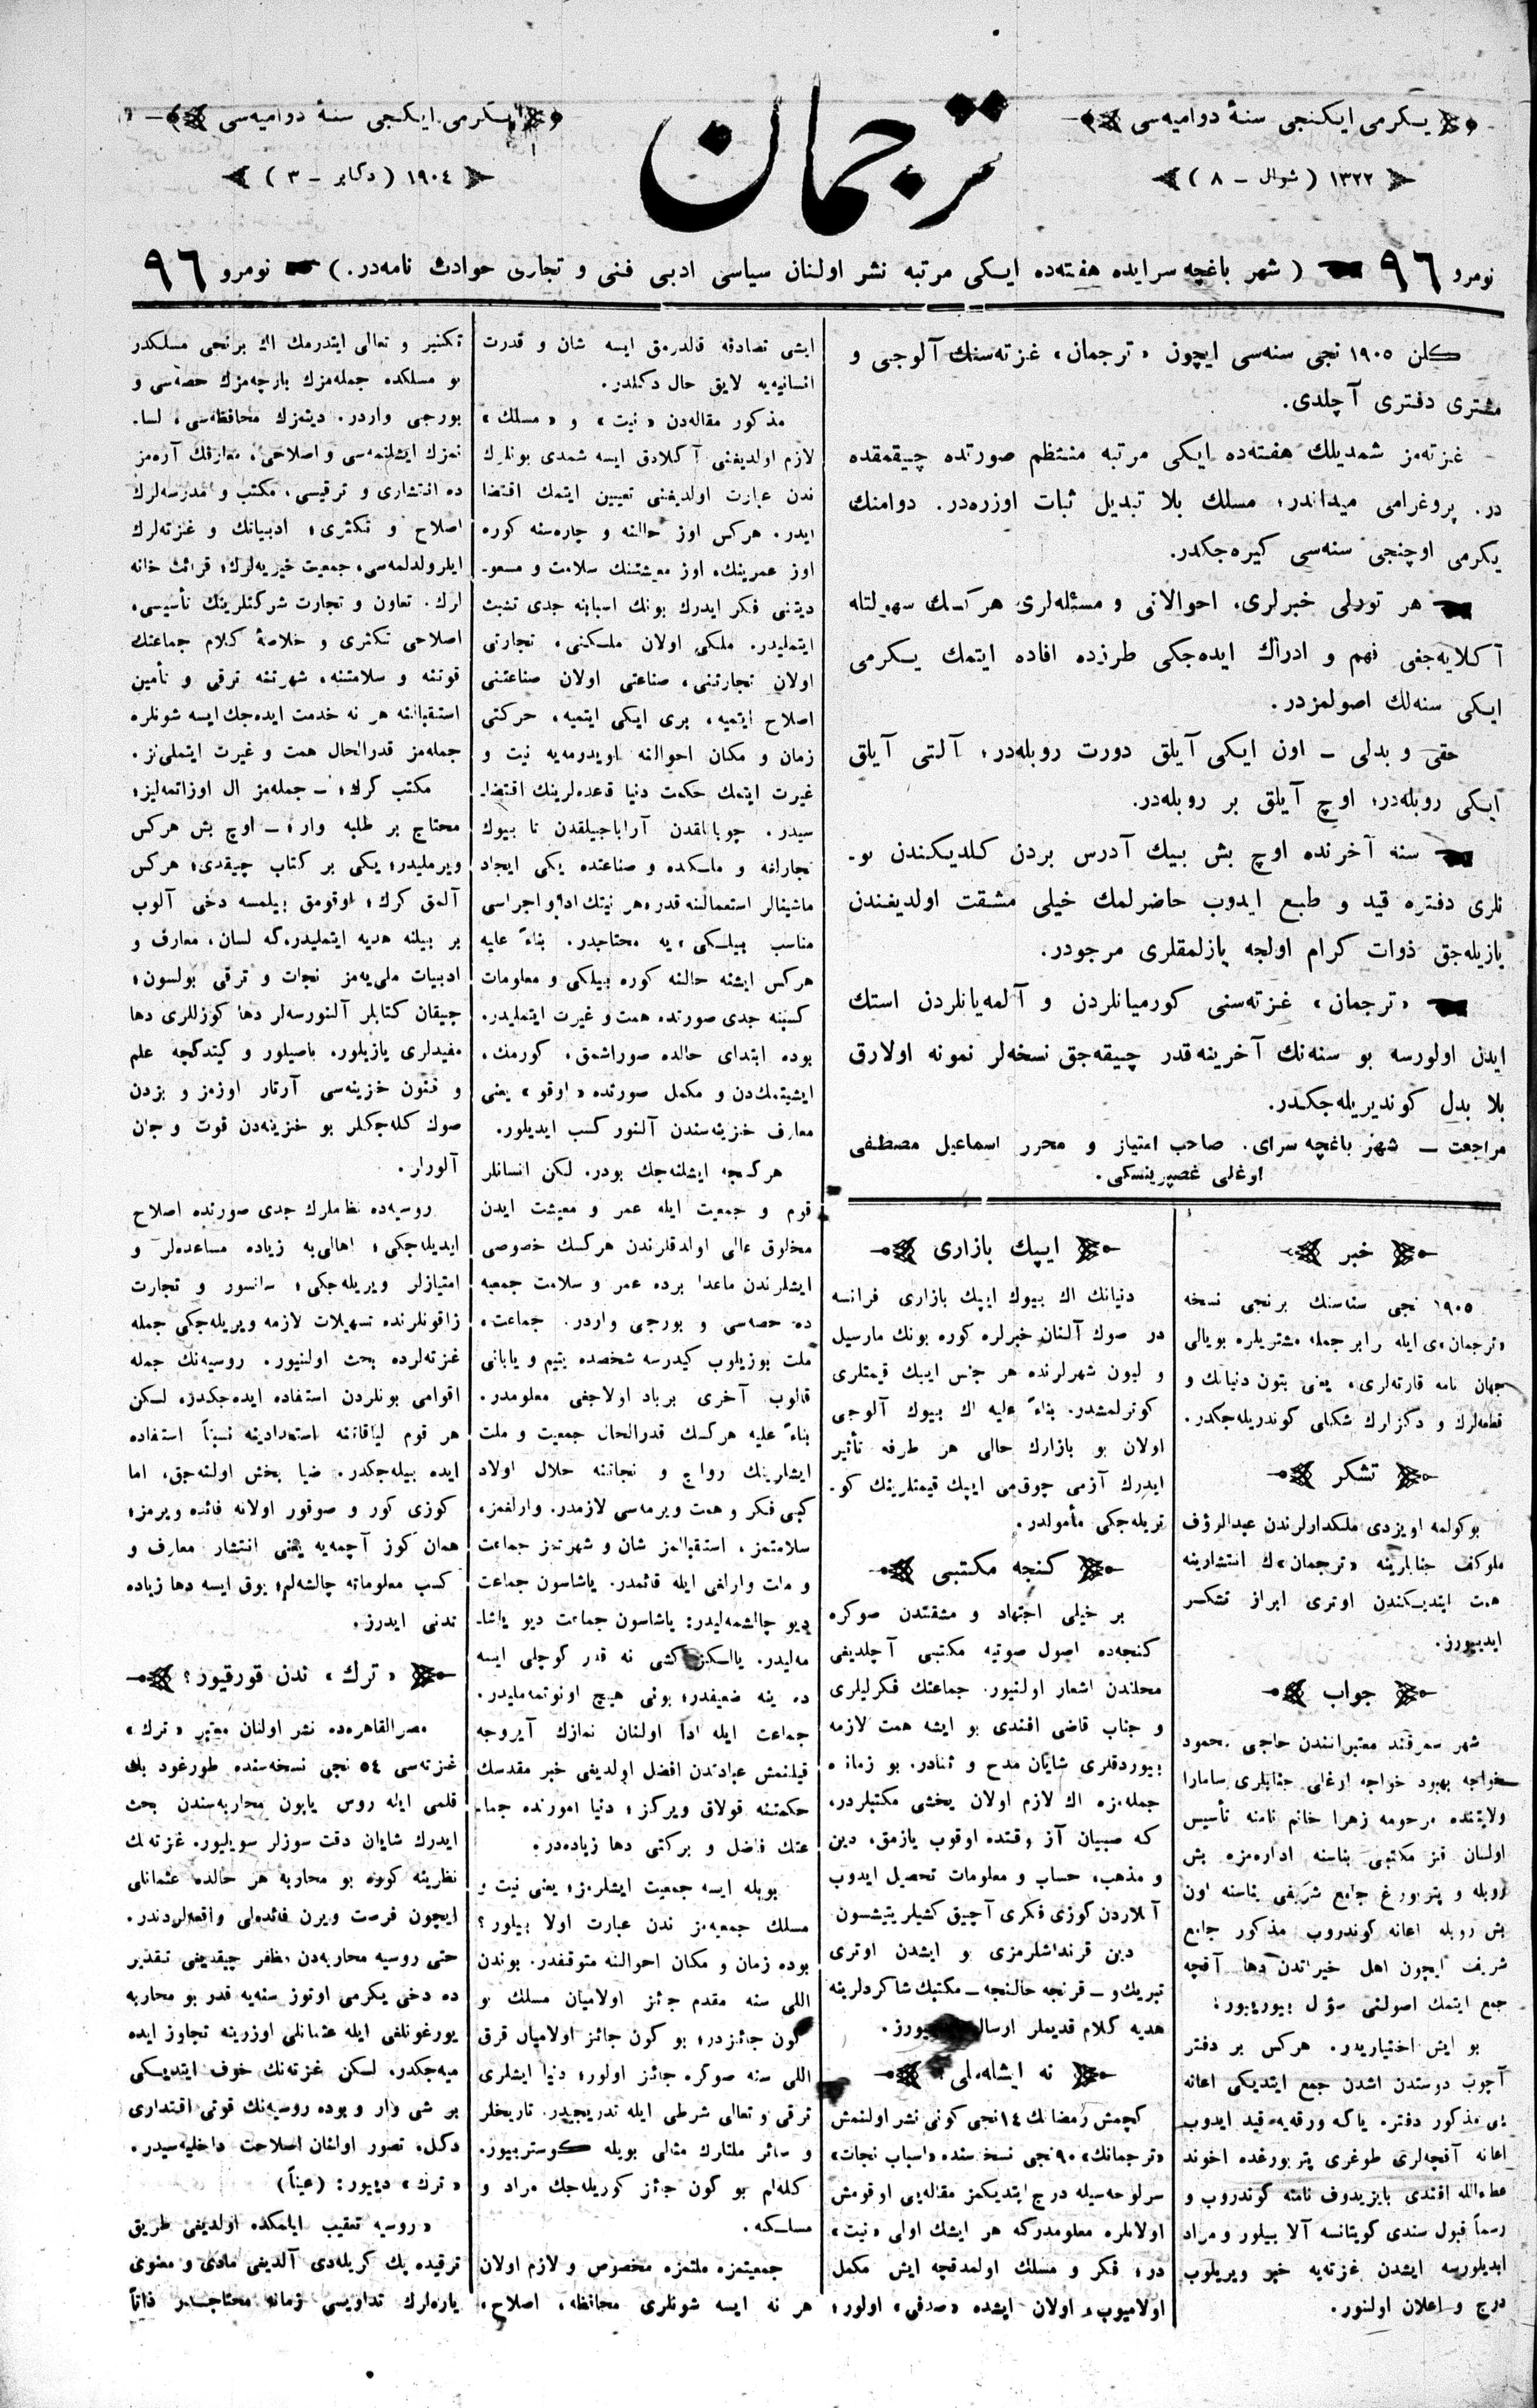 یكرمی ایكنجی سنۀ دوامیه‌سی
١٣٢٢ ( شوال – ٨ )
ترجمان
یكرمی ایكنجی سنۀ دوامیه‌سی
١٩٠٤ ( دكابر – ٣ )
نومرو ٩٦ ( شهر باغچه سرایده هفته‌ده ایكی مرتبه نشر اولنان سیاسی ادبی فنی و تجاری حوادث نامه‌در. ) نومرو ٩٦
كلن ١٩٠٥ نجی سنه‌سی ایچون «ترجمان» غزته‌سنك آلوجی و
مشتری دفتری آچلدی.
غزته‌مز شمدیلك هفته‌ده ایكی مرتبه منتظم صورتده چیقمقده
در. پروغرامی میداندر؛ مسلك بلا تبدیل ثبات اوزره‌در. دوامنك
یكرمی اوچنجی سنه‌سی كیره‌جكدر.
هر تورلی خبرلری، احوالاتی و مسئله‌لری هر كسك سهولتله
آكلایه‌جغی فهم و ادراك ایده‌جكی طرزده افاده ایتمك یكرمی
ایكی سنه‌لك اصولمزدر.
حقی و بدلی – اون ایكی آیلق دورت روبله‌در؛ آلتی آیلق
ایكی روبله‌در؛ اوچ آیلق بر روبله‌در.
سنه آخرنده اوچ بش بیك آدرس بردن كلدیكندن بو-
نلری دفتره قید و طبع ایدوب حاضرلمك خیلی مشقت اولدیغندن
یازیله‌جق ذوات كرام اولجه یازلمقلری مرجودر.
«ترجمان» غزته‌سنی كورمیانلردن و آلمه‌یانلردن استك
ایدن اولورسه بو سنه‌نك آخرینه قدر چیقه‌جق نسخه‌لر نمونه اولارق
بلا بدل كوندیریله‌جكدر.
مراجعت – شهر باغچه سرای. صاحب امتیاز و محرر اسماعیل مصطفی
اوغلی غصپرینسكی.
خبر
١٩٠٥ نجی سنه‌سنك برنجی نسخه
«ترجمان»ی ایله رابر جمله مشتریلره بویالی
جهان نامه قارته‌لری، یعنی بتون دنیانك و
قطعه‌لرك و دكزلرك شكلی كوندریله‌جكدر.
تشكر
بوكولمه اویزدی ملكدارلرندن عبدالرؤف
ملوكف جنابلرینه «ترجمان»ك انتشارینه
همت ایتدیكندن اوتری ابراز تشكر
ایدییورز.
جواب
شهر سمرقند معتبرانندن حاجی محمود
خواجه بهبود خواجه اوغلی جنابلری سامارا
ولایتنده مرحومه زهرا خانم نامنه تأسیس
اولنان قز مكتبی بناسنه اداره‌مزه بش
روبله و پتربورغ جامع شریفی بناسنه اون
بش روبله اعانه كوندروب مذكور جامع
شریف ایچون اهل خیراتدن دها آقچه
جمع ایتمك اصولنی سؤل بیورییور؛
بو ایش اختیاریدر. هركس بر دفتر
آچوب دوستدن اشدن جمع ایتدیكی اعانه
یی مذكور دفتره یاكه ورقه‌یه قید ایدوب
اعانه آقچه‌لری طوغری پتربورغده اخوند
عطاءالله افندی بایزیدوف نامنه كوندروب و
رسماً قبول سندی كویتانسه آلا بیلور و مراد
ایدیلورسه ایشدن غزته‌یه خبر ویریلوب
درج و اعلان اولنور.
ایپك بازاری
دنیانك اك بیوك ایپك بازاری فرانسه
در صوك آلنان خبرلره كوره بونك مارسیل
و لیون شهرلرنده هر جنس ایپك قیمتلری
كوترلمشدر. بناءً علیه اك بیوك آلوجی
اولان بو بازارك حالی هر طرفه تأثیر
ایدرك آزمی چوقمی ایپك قیمتلرینك كو-
تریله‌جكی مأمولدر.
كنجه مكتبی
بر خیلی اجتهاد و مشقتدن صوكره
كنجه‌ده اصول صوتیه مكتبی آچلدیغی
محلندن اشعار اولنیور. جماعتك فكرلیلری
و جناب قاضی افندی بو ایشه همت لازمه
بیوردقلری شایان مدح و ثنادر. بو زمانه
جمله‌مزه اك لازم اولان یخشی مكتبلردر،
كه صبیان آز وقتده اوقوب یازمق، دین
و مذهب، حساب و معلومات تحصیل ایدوب
آنلاردن كوزی فكری آچیق كشیلر یتیشسون
دین قرنداشلرمزی بو ایشدن اوتری
تبریك و – قرنجه حالنجه – مكتبك شاكردلرینه
هدیه كلام قدیملر ارسال
نه ایشله‌ملی؟
كچمش رمضانك ١٤نجی كونی نشر اولنمش
«ترجمانك» ٩٠نجی نسخه‌سنده «اسباب نجات»
سرلوحه‌سیله درج ایتدیكمز مقاله‌یی اوقومش
اولانلره معلومدركه هر ایشك اولی «نیت»
در؛ فكر و مسلك اولمدقچه ایش مكمل
اولامیوب، اولان ایشده «صدفی» اولور؛
ایشی تصادفه قالدرمق ایسه شان و قدرت
انسانیه‌یه لایق حال دكلدر.
مذكور مقاله‌دن «نیت» و «مسلك»
لازم اولدیغنی آكلادق ایسه شمدی بونلرك
ندن عبارت اولدیغنی تعیین ایتمك اقتضا
ایدر. هركس اوز حالنه و چاره‌سنه كوره
اوز عمرینك، اوز معیشتنك سلامت و مسعو-
دیتنی فكر ایدرك بونك اسبابنه جدی تشبث
ایتملیدر. ملكی اولان ملكنی، تجارتی
اولان تجارتنی، صناعتی اولان صناعتنی
اصلاح ایتمیه، بری ایكی ایتمیه، حركتی
زمان و مكان احوالنه اویدرمه‌یه نیت و
غیرت ایتمك حكمت دنیا قاعده‌لرینك اقتضا-
سیدر. چوبانلقدن آراباجیلقدن تا بیوك
تجارلغه و ملكده و صناعتده یكی ایجاد
ماشینالر استعمالنه قدر هر نیتك ادا و اجراسی
مناسب «بیلكی» یه محتاجدر. بناءً علیه
هركس ایشنه حالنه كوره بیلكی و معلومات
كسبنه جدی صورتده همت و غیرت ایتملیدر.
بوده ابتدای حالده صوراشمق، كورمك،
ایشیتمكدن و مكمل صورتده «اوقو» یعنی
معارف خزینه‌سندن آلنور كسب ایدیلور.
هركجه ایشلنه‌جك بودر. لكن انسانلر
قوم و جمعیت ایله عمر و معیشت ایدن
مخلوق عالی اولدقلرندن هركسك خصوصی
ایشلرندن ماعدا برده عمر و سلامت جمعیه
ده حصه‌سی و بورجی واردر. جماعت،
ملت بوزیلوب كیدرسه شخصده یتیم و یابانی
قالوب آخری برباد اولاجغی معلومدر.
بناءً علیه هركسك قدرالحال جمعیت و ملت
ایشلرینك رواج و نجاتنه حلال اولاد
كبی فكر و همت ویرمه‌سی لازمدر. وارلغمز،
سلامتمز، استقبالمز شان و شهرتمز جماعت
و ملت وارلغی ایله قائمدر. یاشاسون جماعت
دیو چالشمه‌لیدر: یاشاسون جماعت دیو یاشا-
مه‌لیدر. یالكز كشی نه قدر كوچلی ایسه
ده ینه ضعیفدر؛ بونی هیچ اونوتمه‌ملیدر.
جماعت ایله ادا اولنان نمازك آیروجه
قیلنمش عبادتدن افضل اولدیغی خبر مقدسك
حكمتنه قولاق ویركز؛ دنیا امورنده جما-
عتك فاضل و بركتی دها زیاده‌در.
بویله ایسه جمعیت ایشلرمز؛ یعنی نیت و
مسلك جمعیه‌مز ندن عبارت اولا بیلور؟
بوده زمان و مكان احوالنه متوقفدر. بوندن
اللی سنه مقدم جائز اولامیان مسلك بو
كون جائزدر؛ بو كون جائز اولامیان قرق
اللی سنه صوكره جائز اولور؛ دنیا ایشلری
ترقی و تعالی شرطی ایله تدریجیدر. تاریخلر
و سائر ملتلرك مثالی بویله كوستربیور.
كله‌لم بو كون جائز كوریله‌جك مراد و
مسلكه.
جمعیتمزه ملتمزه مخصوص و لازم اولان
هر نه ایسه شونلری محافظه، اصلاح،
تكثیر و تعالی ایتدرمك اك برنجی مسلكدر
بو مسلكده جمله‌مزك بارچه‌مزك حصه‌سی و
بورجی واردر. دینمزك محافظه‌سی، لسا-
نمزك ایشلنمه‌سی و اصلاحی، معارفك آره‌مز
ده انتشاری و ترقیسی، مكتب و مدرسه‌لرك
اصلاح و تكثری؛ ادبیاتك و غزته‌لرك
ایلرولدلمه‌سی، جمعیت خیریه‌لرك؛ قرائت خانه
لرك. تعاون و تجارت شركتلرینك تأسیسی،
اصلاحی تكثری و خلاصۀ كلام جماعتك
قوتنه و سلامتنه، شهرتنه ترقی و تأمین
استقبالنه هر نه خدمت ایده‌جك ایسه شونلره
جمله‌مز قدرالحال همت و غیرت ایتملی‌یز.
مكتب كرك؛ – جمله‌مز ال اوزاتمه‌لیز؛
محتاج بر طلبه وار؛ – اوچ بش هركس
ویرملیدر؛ یكی بر كتاب چیقدی؛ هركس
آلمق كرك؛ اوقومق بیلمسه دخی آلوب
بر بیلنه هدیه ایتملیدر، كه لسان، معارف و
ادبیات ملی‌یه‌مز نجات و ترقی بولسون؛
چیقان كتابلر آلنورسه‌لر دها كوزللری دها
مفیدلری یازیلور، باصیلور و كیتدكچه علم
و فنون خزینه‌سی آرتار اوزمز و بزدن
صوك كله‌جكلر بو خزینه‌دن قوت و جان
آلورلر.
روسیه‌ده نظاملرك جدی صورتده اصلاح
ایدیله‌جكی؛ اهالی‌یه زیاده مساعده‌لر و
امتیازلر ویریله‌جكی؛ سانسور و تجارت
زاقونلرنده تسهیلات لازمه ویریله‌جكی جمله
غزته‌لرده بحث اولنیور. روسیه‌نك جمله
اقوامی بونلردن استفاده ایده‌جكدر، لكن
هر قوم لیاقاتنه استعدادینه نسبتاً استفاده
ایده بیله‌جكدر. ضیا بخش اولنه‌جق، اما
كوزی كور و صوقور اولانه فائده ویرمز؛
همان كوز آچمه‌یه یعنی انتشار معارف و
كسب معلوماته چالشه‌لم؛ یوق ایسه دها زیاده
تدنی ایدرز.
«ترك» ندن قورقیور؟
مصرالقاهره‌ده نشر اولنان معتبر «ترك»
غزته‌سی ٥٤ نجی نسخه‌سنده طورغود بك
قلمی ایله روس یاپون محاربه‌سندن بحث
ایدرك شایان دقت سوزلر سویلیور. غزته‌نك
نظرینه كوره بو محاربه هر حالده عثمانلی
ایچون فرصت ویرن فائده‌لی واقعه‌لردندر.
حتی روسیه محاربه‌دن مظفر چیقدیغی تقدیر
ده دخی یكرمی اوتوز سنه‌یه قدر بو محاربه
یورغونلغی ایله عثمانلی اوزرینه تجاوز ایده
میه‌جكدر. لكن غزته‌نك خوف ایتدیكی
بر شی وار و بوده روسیه‌نك قوتی اقتداری
دكل، تصور اولنان اصلاحت داخلیه‌سیدر.
«ترك» دییور: (عیناً)
«روسیه تعقیب ایلمكده اولدیغی طریق
ترقیده پك كریله‌دی آلدیغی مادی و معنوی
یاره‌لرك تداویسی زمانه محتاجدر ذاتاً